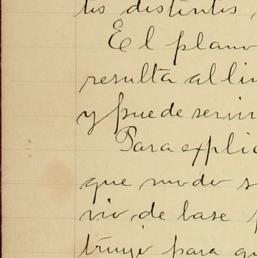 tes distintos,
El plano
resulta al li
y puede servir
Para explic
que modo s
vio, de base
truyó para qu